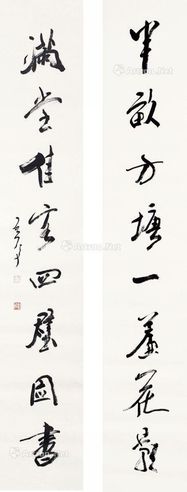 半畝方塘一簾花影
滿堂佳客四壁圖書